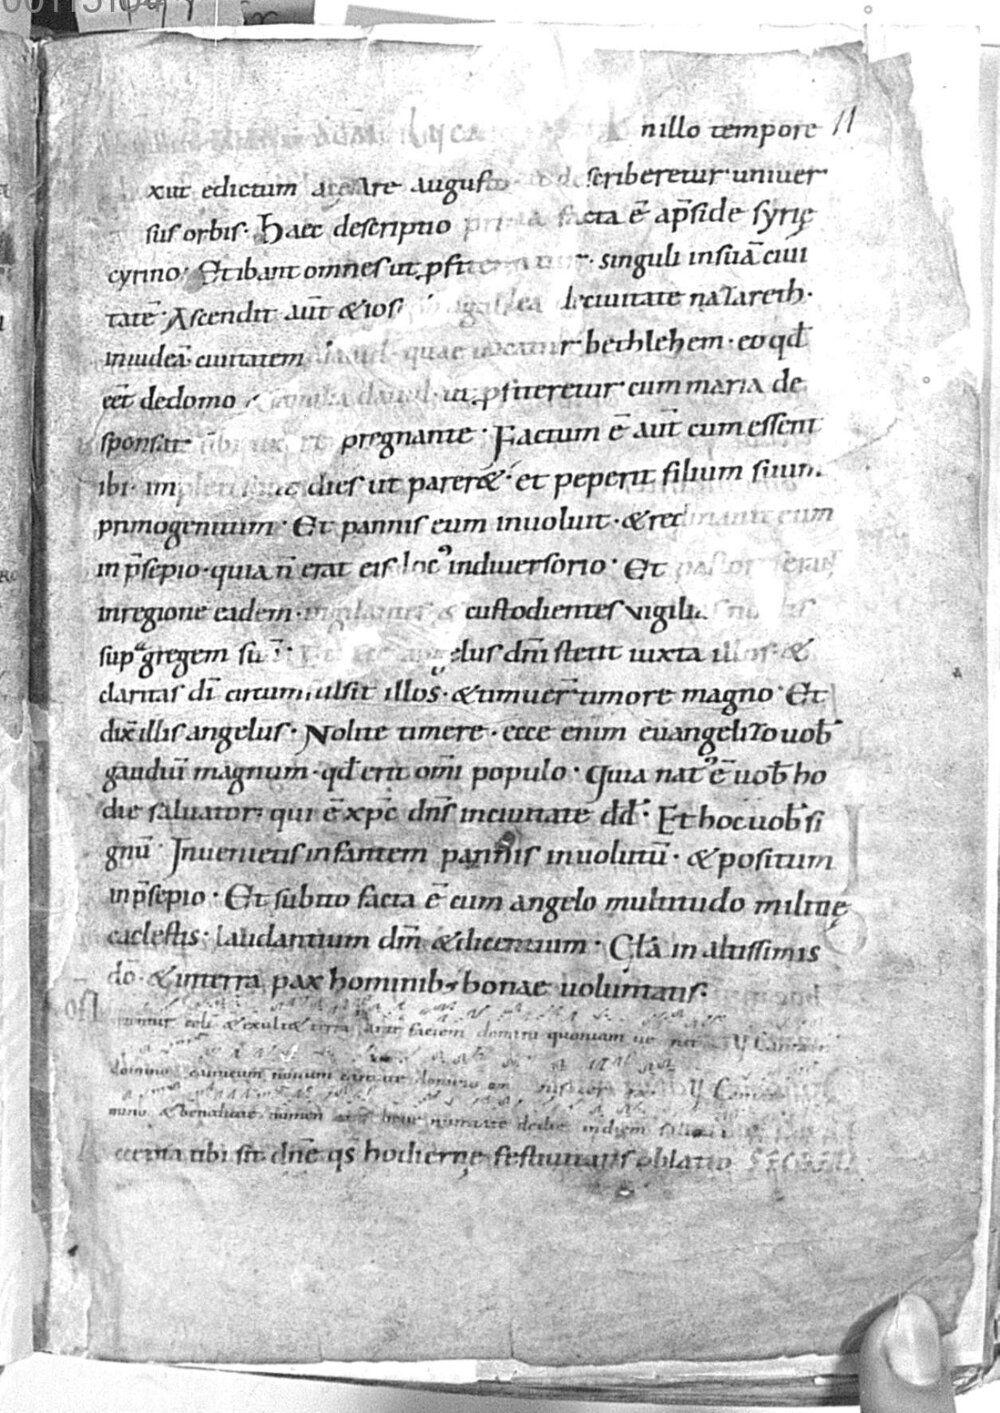 nillo tempore 11
xiit edictum a cesare augusto scriberetur· uniuer
sus orbis· Haec descriptio prima facta ē ap̄side syrię
cyrino· Et ibant omnes ut p̱fiterentur· singuli insuā ciui
tatē· Ascendit aūt & ios galilea deciuitate nazareth·
iniudeā· ciuitatem dauid· quae uocatur bethlehem· eo qđ
eēt dedomo & familia dauid· ut p̱fiteretur· cum maria de
sponsat sibi ux re pregnante· Factum ē aūt cum essent
ibi· impleti dies ut parer&· et peperit filium suum
primogenitum· Et pannis eum inuoluit· & reclinauit eum
in p̄sepio· quia n̄ erat eis locꝰ indiuersorio· Et pastores erāt
inregione eadem· uigilantes & custodientes uigilias noctis
sup gregem suū· Et ecce angelus dn̄i stetit iuxta illos· &
claritas dī circumfulsit illos· & timuer̄ timore magno· Et
dix̄ illis angelus· Nolite timere· ecce enim euangelizo uob̄
gaudiū magnum· qđ erit om̄i populo· Quia natꝰ ē uob̄ ho
die saluator· qui ē xp̄c dn̄s inciuitate dd̄· Et hoc uob̄ si
gnū· Inuenietis infantem pannis inuolutū· & positum
in p̄sepio· Et subito facta ē cum angelo multitudo militię
caelestis· laudantium dm̄ & dicentium· Gl̄a in altissimis
dō· & interra pax hominibꝫ bonae uoluntatis·
Of
tentur celi & exult& terra ante faciem domini quoniam ue nit V Cantate
domino canticum nouum cantate domino om V Cantate
mino & benedicite nomen eius bene nuntiate de die indiem
ccepta tibi sit dn̄e qs̄ hodiernę festiuitatis oblatio SECRETA